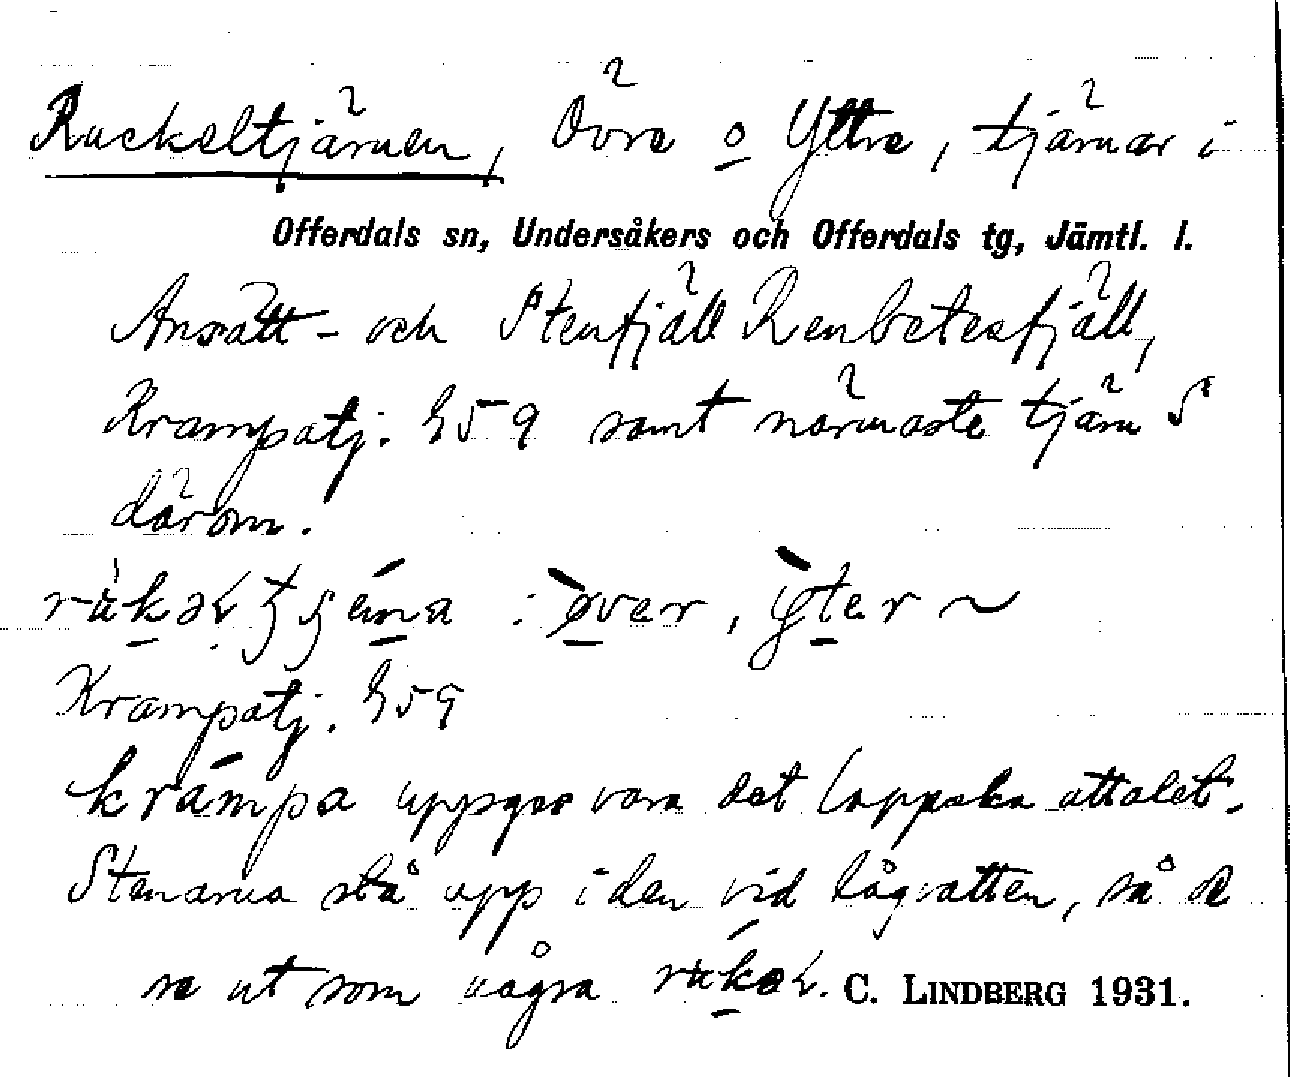 Ruckeltjärnen, Övre o Yttre, tjärnar i
Offerdals sn, Undersåkers och Offerdals tg, Jämtl. l.
Ansätt- och Stenfjäll Renbetesfjäll,
Krampatj. 659 samt närmaste tjärn S
därom.
: øver, yter ~
Krampatj. 659
krampa uppges vara det lappska uttalet.
Stenarna stå upp i den vid lågvatten, så de
se ut som några C. LINDBERG 1931.